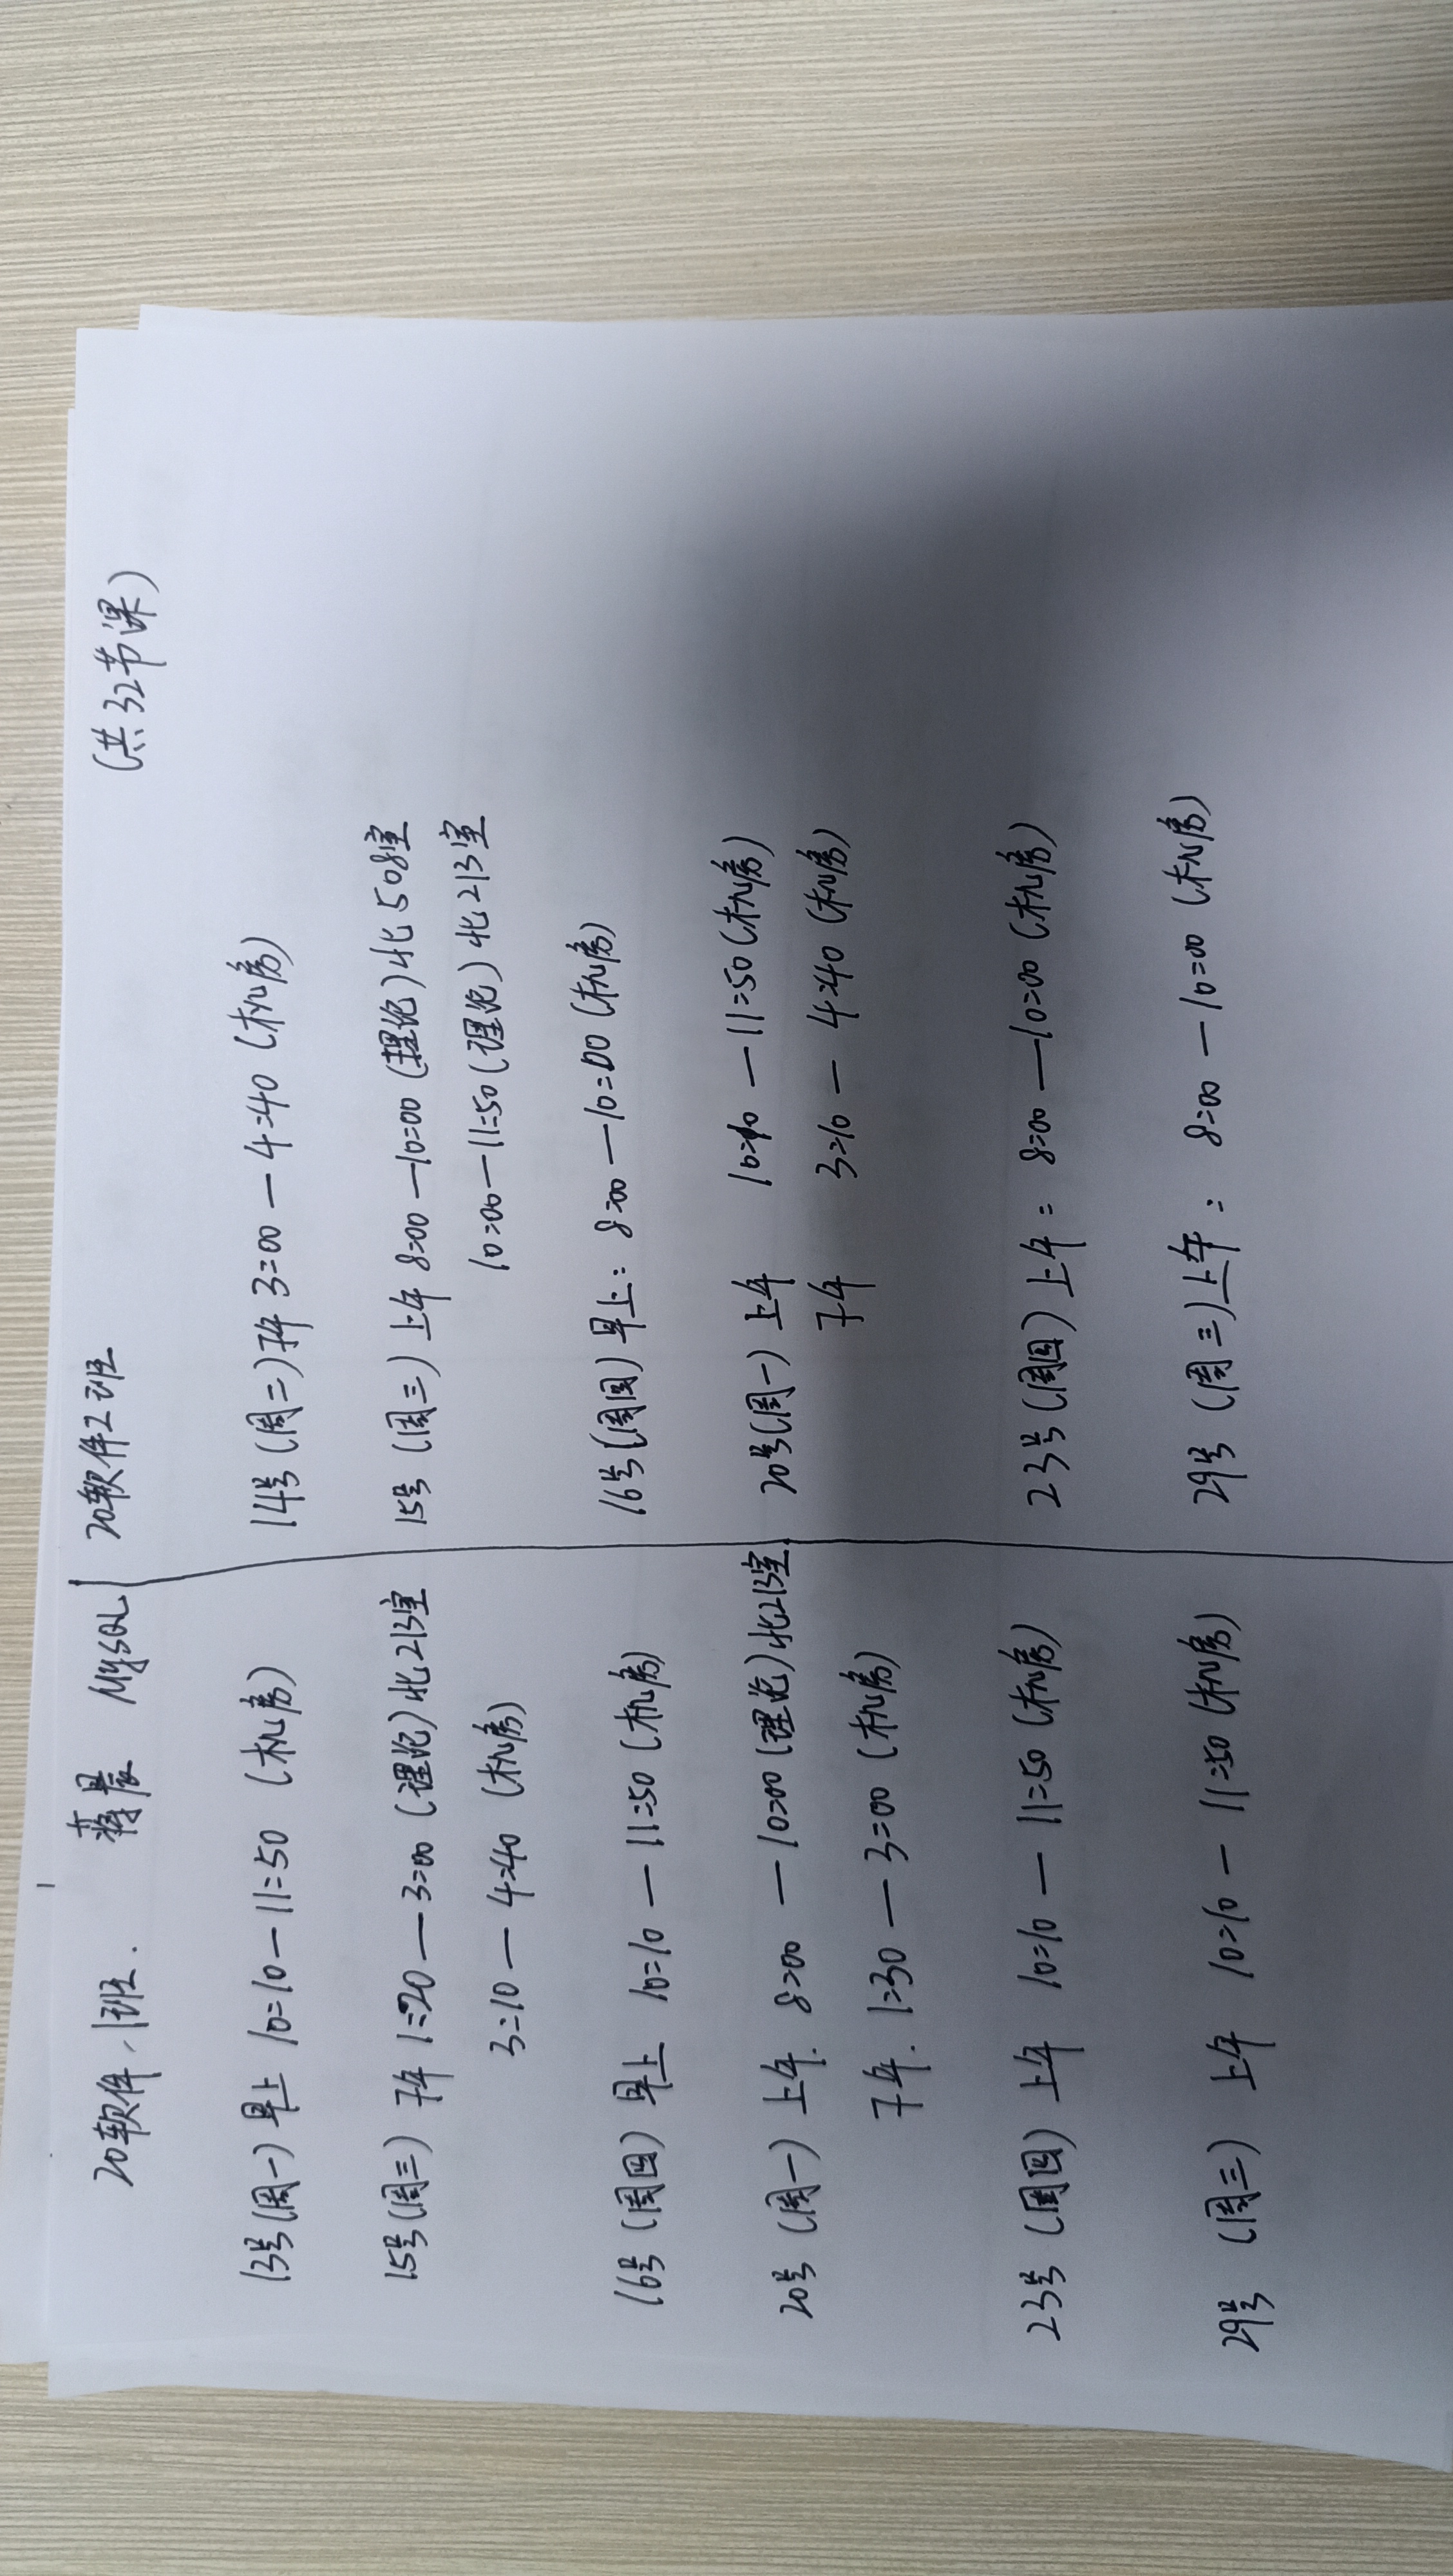 20软件1班. 蒋晨 MySQL
13号(周一) 早上 10:10—11:50 (机房)
15号(周三) 下午 1:20—3:00 (理论) 北213室
3:10—4:40 (机房)
16号(周四) 早上 10:10—11:50 (机房)
20号(周一) 上午. 8:00—10:00 (理论) 北213室
下午. 1:30—3:00 (机房)
23号(周四) 上午 10:10—11:50 (机房)
29号(周三) 上午 10:10—11:50 (机房)
20软件2班 (共32节课)
14号(周二) 下午 3:00—4:40 (机房)
15号(周三) 上午 8:00—10:00 (理论) 北508室
10:00—11:50 (理论) 北213室
16号(周四) 早上: 8:00—10:00 (机房)
20号(周一) 上午 10:10—11:50 (机房)
下午 3:10—4:40 (机房)
23号(周四) 上午: 8:00—10:00 (机房)
29号(周三) 上午: 8:00—10:00 (机房)